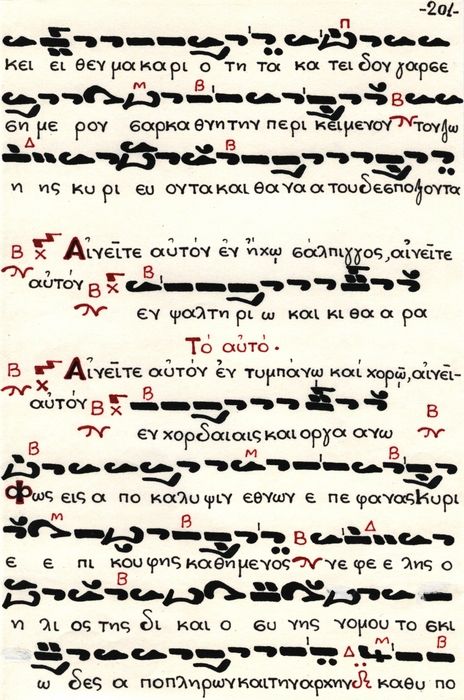 -201-
κει ει θεν μα κα ρι ο τη τα κα τει δον γαρ σε
ση με ρον σαρκα θνητην περι κειμενον τον ζω
η ης κυ ρι ευ οντα και θα να α του δεσποζοντα
Αἰνεῖτε αὐτόν ἐν ἤχῳ σάλπιγγος, αἰνεῖτε
αὐτόν
εν ψαλτη ρι ω και κι θα α ρα
Τό αὐτό.
Αἰνεῖτε αὐτόν ἐν τυμπάνῳ καί χορῷ, αἰνεῖ-
αὐτόν
εν χορδαιαις και οργα ανω
Φως εις α πο καλυψιν εθνων ε πε φανας Κυρι
ε ε πι κουφης καθημενος νε φε ε λης ο
η λι ος της δι και ο συ νης νομου το σκι
ω δες α ποπληρων και την αρχην καθυ πο